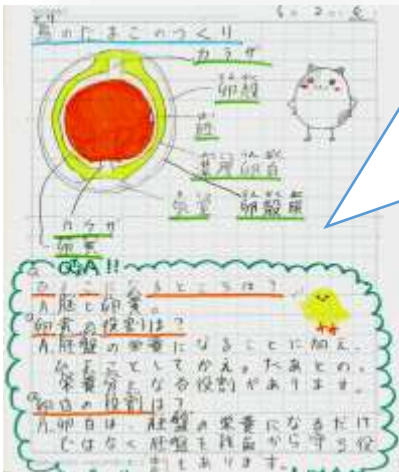 とり
鳥のたまごのつくり
カラザ
卵殻
胚
卵殻膜
気室
カラザ
卵黄
Q&A!!
ひよこになるところは?
A.胚と卵黄。
卵黄の役割は?
A.胚盤の栄養になることに加え、
ひよことしてかえったあとの、
栄養分となる役割があります。
卵白の役割は?
A.卵白は、胚盤の栄養になるだけ
ではなく胚盤を細菌から守る役